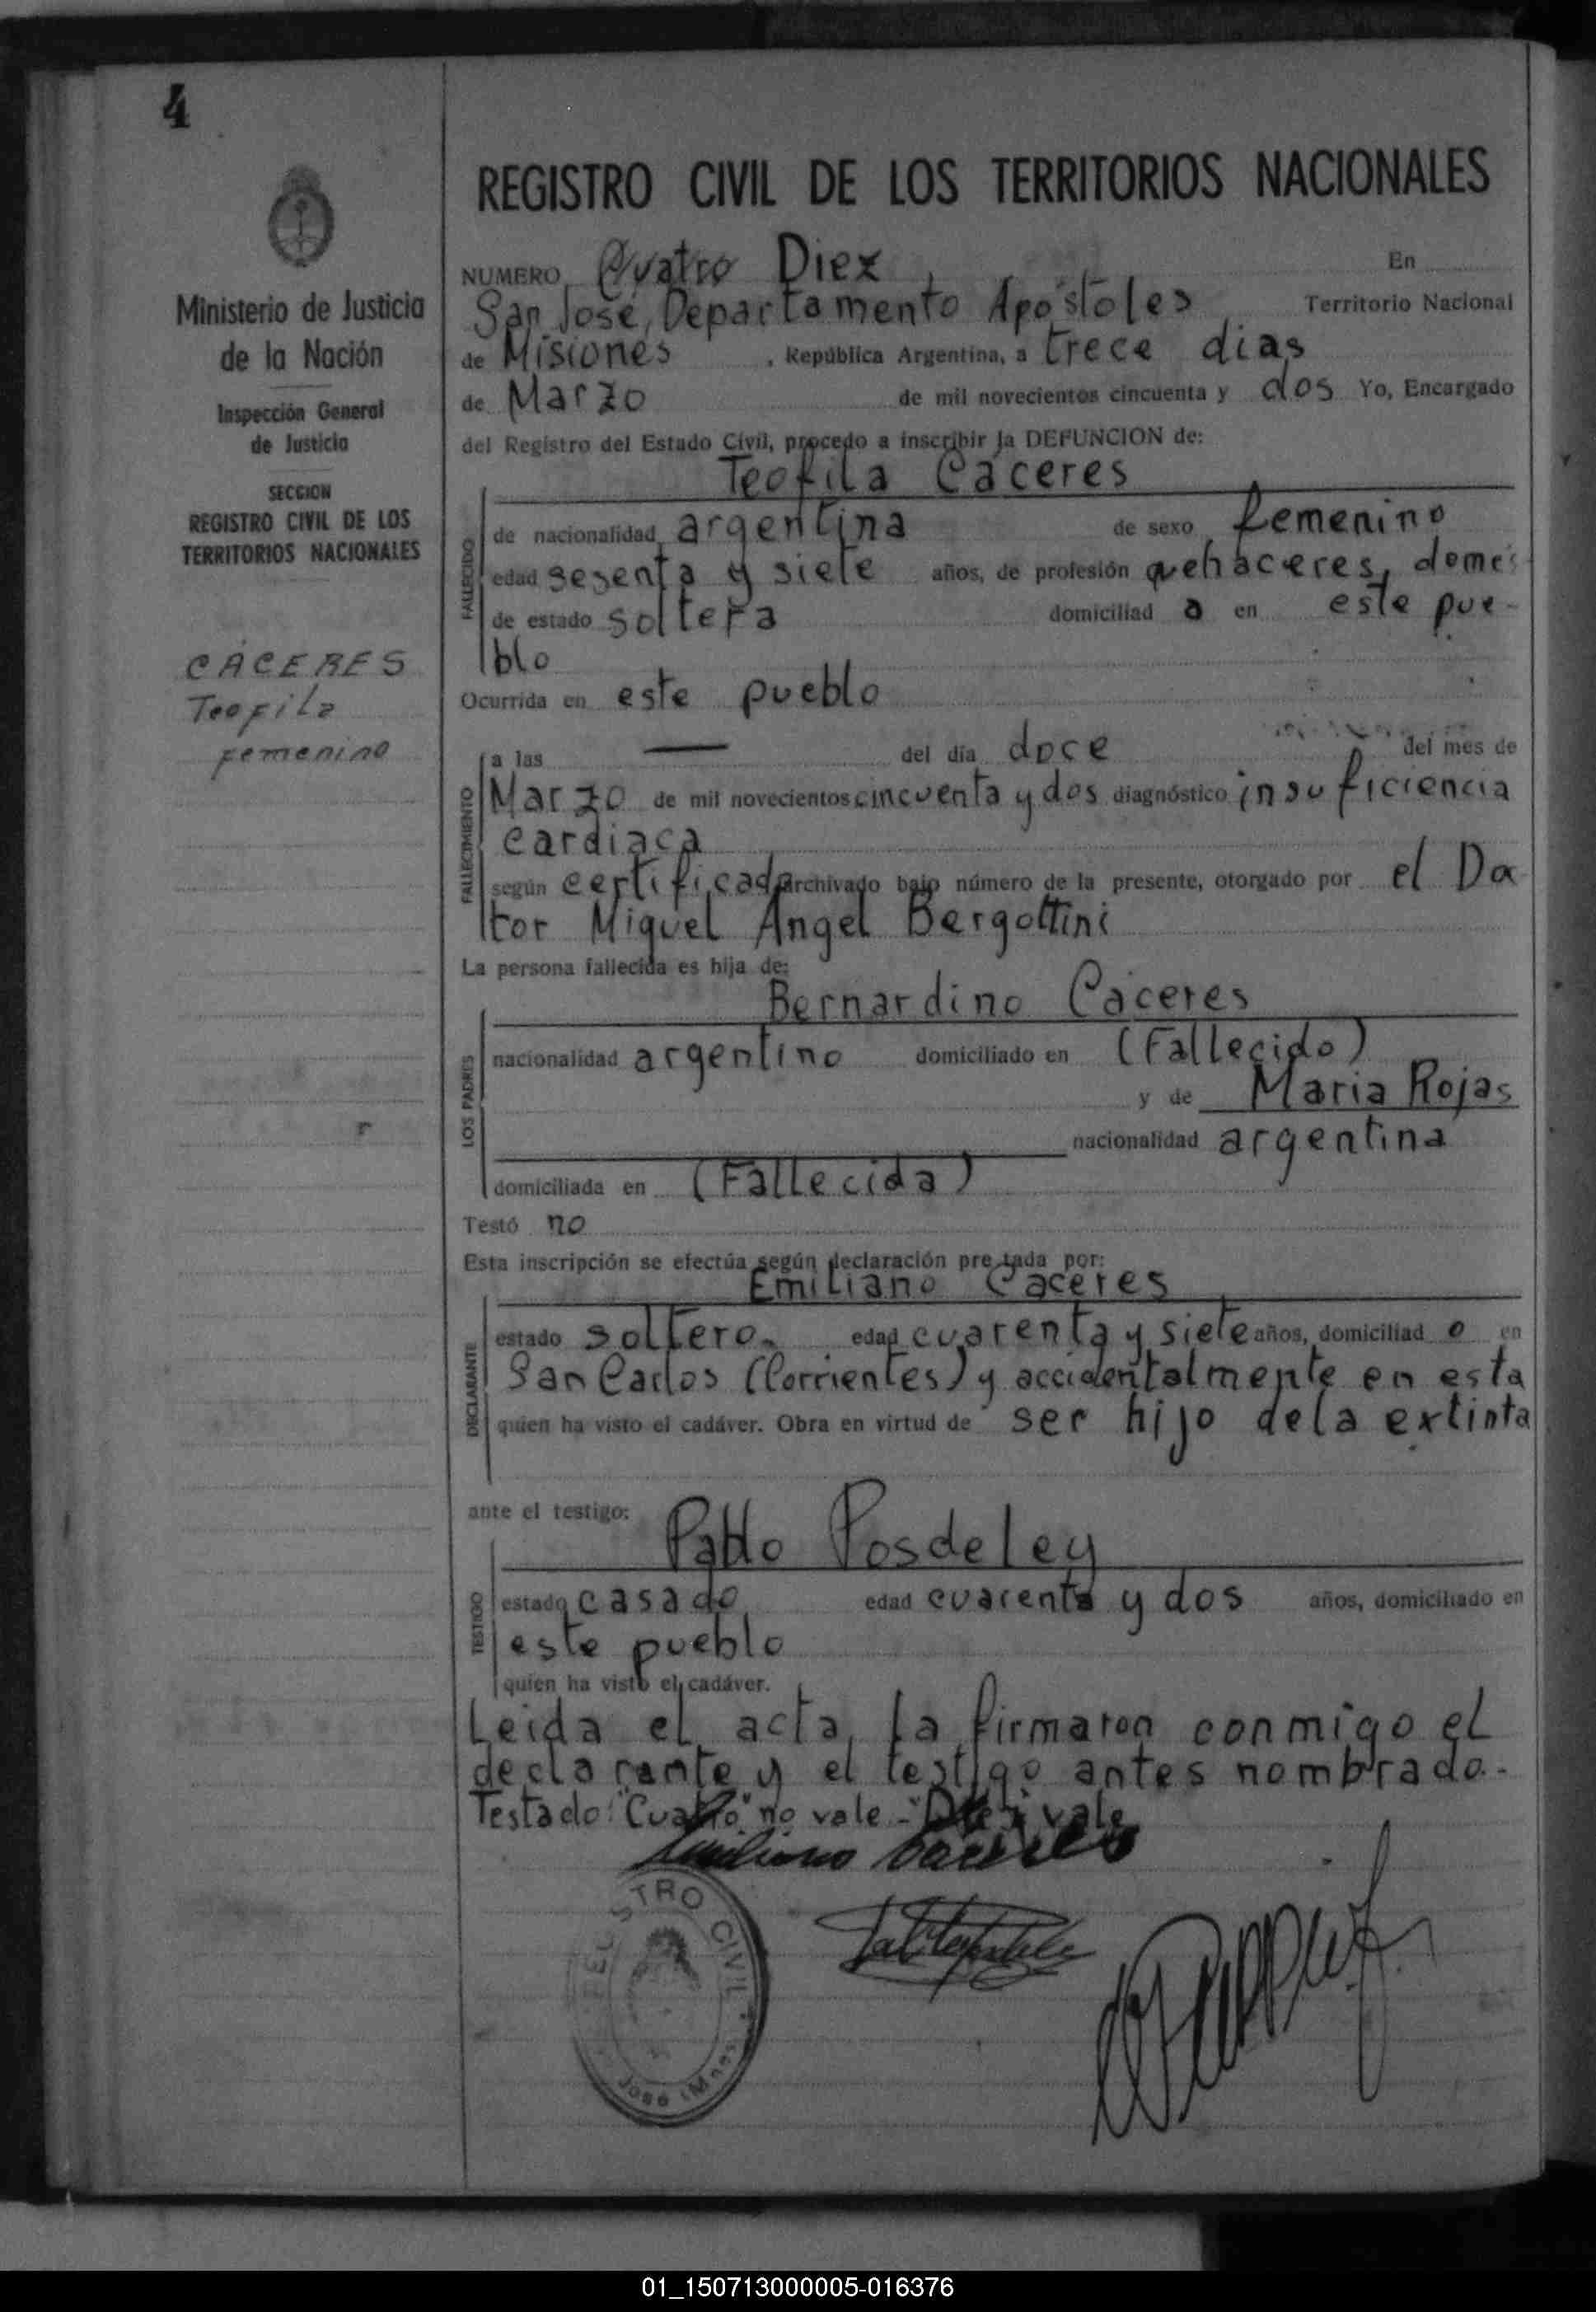 4
REGISTRO CIVIL DE LOS TERRITORIOS NACIONALES
Ministerio de Justicia
de la Nación
Inspección General
de Justicia
SECCION
REGISTRO CIVIL DE LOS
TERRITORIOS NACIONALES
CÁCERES
Teofila
femenino
NUMERO Cuatro Diez En
San José, Departamento Apóstoles Territorio Nacional
de Misiones, República Argentina, a trece dias
de Marzo de mil novecientos cincuenta y dos Yo, Encargado
del Registro del Estado Civil, procedo a inscribir la DEFUNCION de:
Teofila Caceres
FALLECIDO
de nacionalidad argentina de sexo femenino
edad sesenta y siete años, de profesión quehaceres domés
de estado soltera domiciliad a en este pue-
blo
Ocurrida en este pueblo
FALLECIMIENTO
a las — del día doce del mes de
Marzo de mil novecientos cincuenta y dos diagnóstico insuficiencia
cardiaca
según certificado archivado bajo número de la presente, otorgado por el Doc
tor Miguel Angel Bergottini
La persona fallecida es hija de:
Bernardino Caceres
LOS PADRES
nacionalidad argentino domiciliado en (Fallecido)
y de Maria Rojas
nacionalidad argentina
domiciliada en (Fallecida)
Testó no
Esta inscripción se efectúa según declaración pre tada por:
Emiliano Caceres
DECLARANTE
estado soltero. edad cuarenta y siete años, domiciliad o en
San Carlos (Corrientes) y accidentalmente en esta
quien ha visto el cadáver. Obra en virtud de ser hijo dela extinta
ante el testigo:
Pablo Posdeley
TESTIGO
estado casado edad cuarenta y dos años, domiciliado en
este pueblo
quien ha visto el cadáver.
Leida el acta, la firmaron conmigo el
declarante y el testigo antes nombrado.-
Testado: "Cuatro" no vale - "Diez" vale
Emiliano Caceres
STRO CIVIL
José (Mnes
01_150713000005-016376